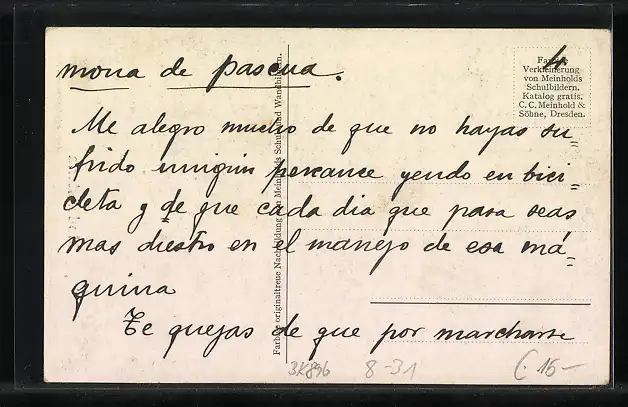 mona de pascua.
Me alegro mucho de que no hayas su=
frido ninigún percance yendo en bici=
cleta y de que cada dia que pasa seas
mas diestro en el manejo de esa má=
quina
Te quejas de que por marcharse
Farbige
Verkleinerung
von Meinholds
Schulbildern.
Katalog gratis.
C. C. Meinhold &
Söhne, Dresden.
4
Farbige originaltreue Nachbildung von Meinholds Schul- und Wandbildern.
3K896
8-31
€ 15-